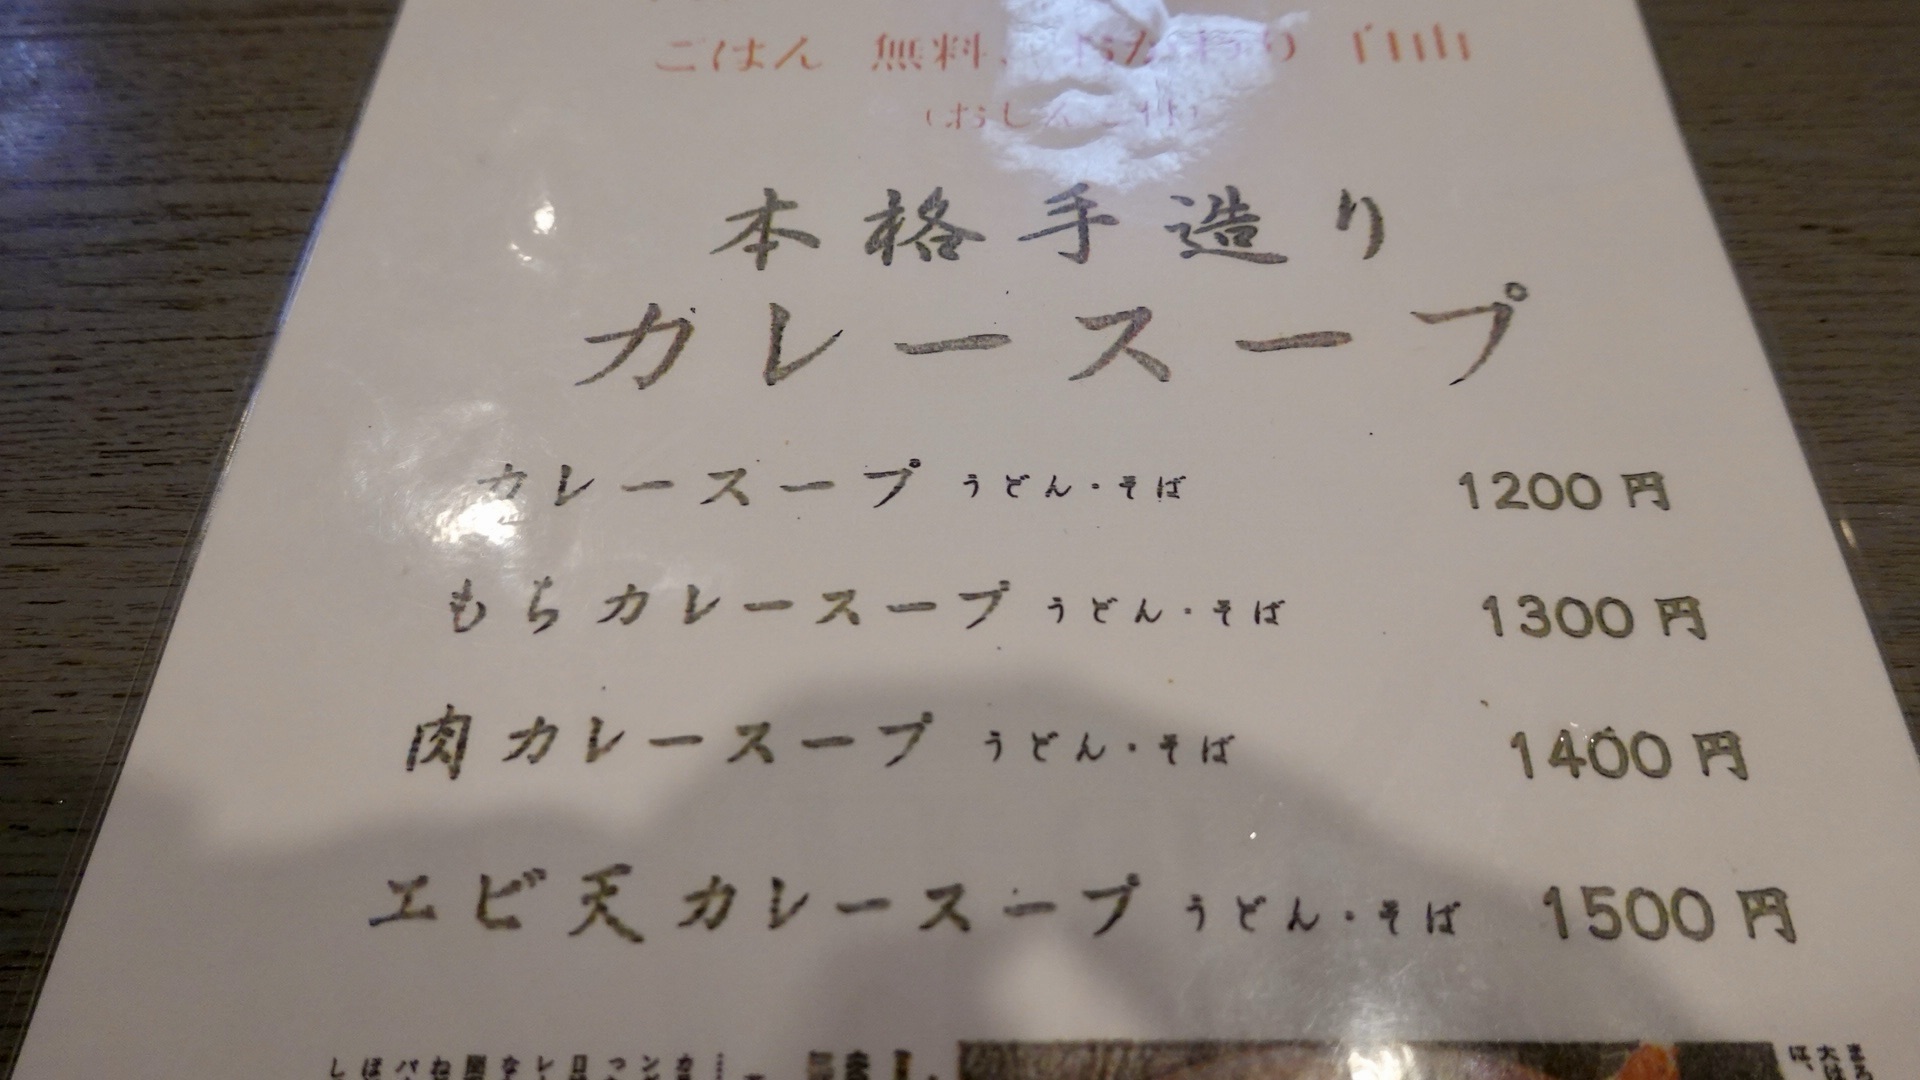 ごはん 無料、おかわり 自由
(おしんこ付)
本格手造り
カレースープ
カレースープ うどん・そば 1200円
もちカレースープ うどん・そば 1300円
肉カレースープ うどん・そば 1400円
エビ天カレースープ うどん・そば 1500円